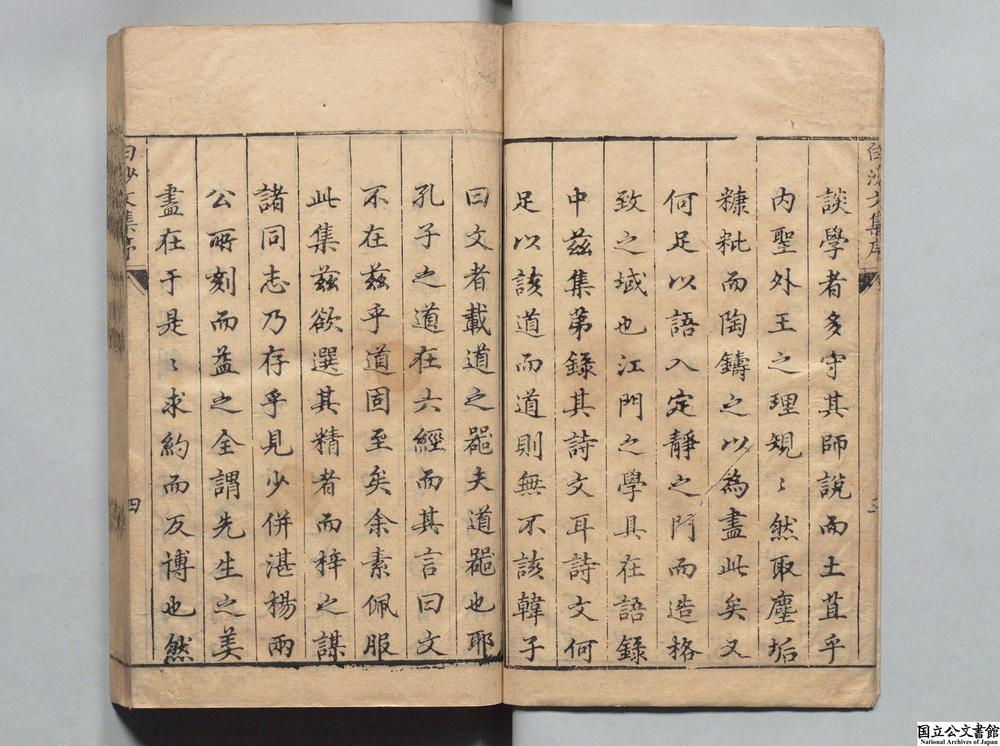 白沙文集序
三
談學者多守其師說而土苴乎
內聖外王之理規〻然取塵垢
糠粃而陶鑄之以為盡此矣又
何足以語入定靜之門而造格
致之域也江門之學具在語錄
中茲集第錄其詩文耳詩文何
足以該道而道則無不該韓子
曰文者載道之噐夫道噐也耶
孔子之道在六經而其言曰文
不在茲乎道固至矣余素佩服
此集茲欲選其精者而梓之謀
諸同志乃存乎見少併湛楊兩
公所刻而益之全謂先生之美
盡在于是〻求約而反博也然
白沙文集序
四
国立公文書館
National Archives of Japan